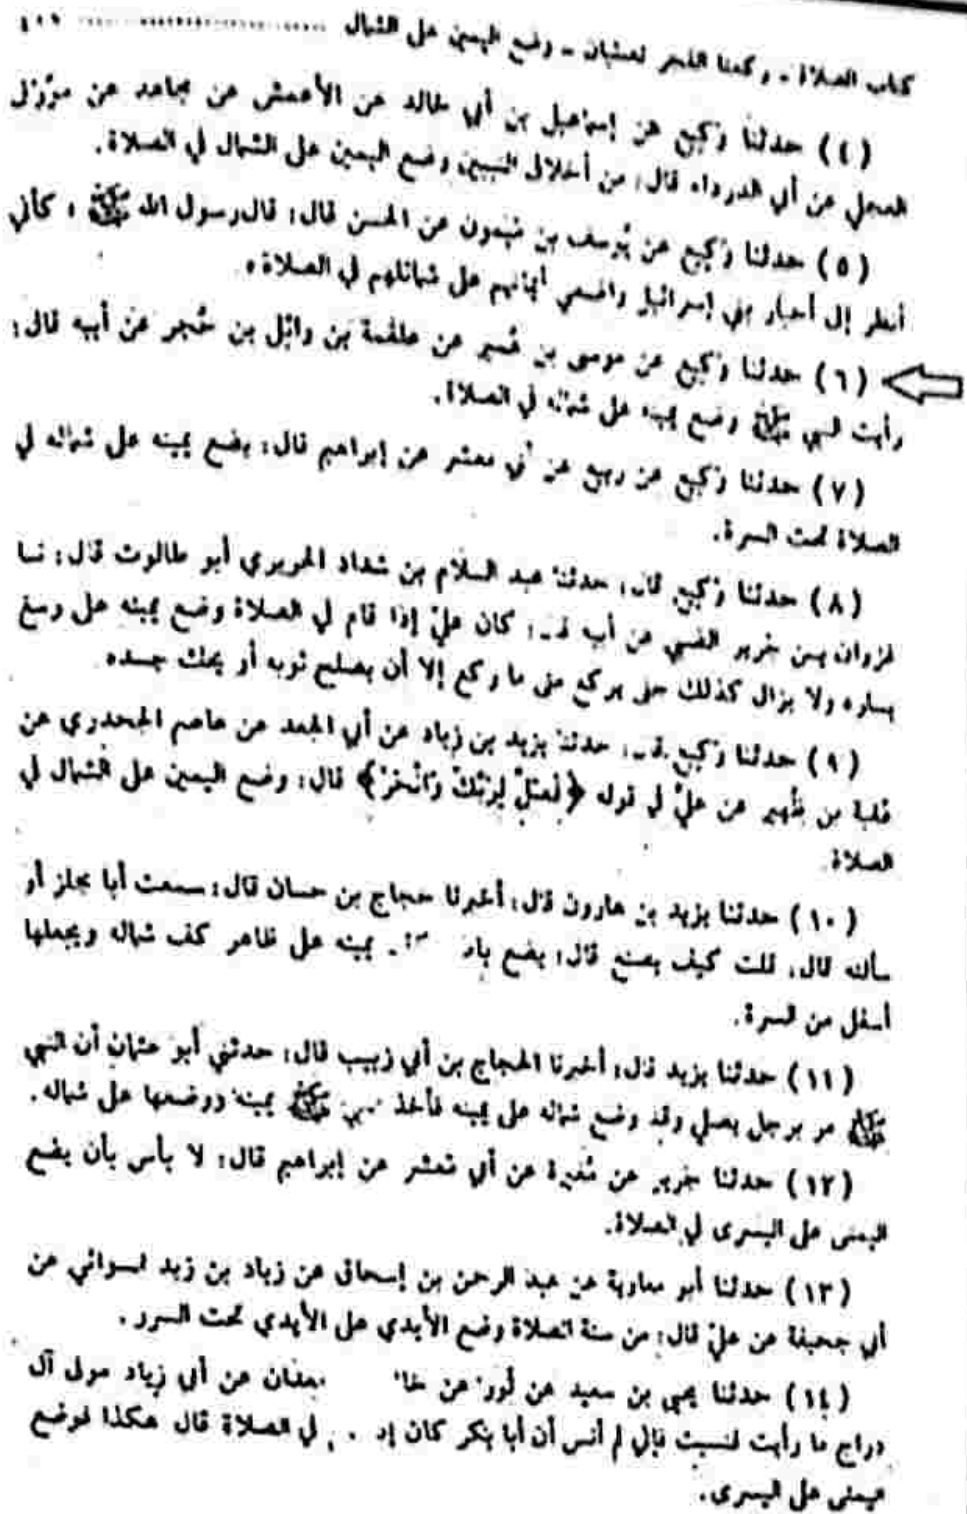 كتاب الصلاة - ركعتا الفجر تصليان - وضع اليمين على الشمال
(٤) حدثنا وكيع عن إسماعيل بن أبي خالد عن الأعمش عن مجاهد عن مورّق
العجلي عن أبي الدرداء قال: من أخلاق النبيين وضع اليمين على الشمال في الصلاة.
(٥) حدثنا وكيع عن يُوسف بن ميمون عن الحسن قال: قال رسول الله ﷺ ، كأني
أنظر إلى أحبار بني إسرائيل واضعي أيمانهم على شمائلهم في الصلاة ،
(٦) حدثنا وكيع عن موسى بن عُمير عن علقمة بن وائل بن حُجر عن أبيه قال:
رأيت النبي ﷺ وضع يمينه على شماله في الصلاة.
(٧) حدثنا وكيع عن ربيع عن أبي معشر عن إبراهيم قال: يضع يمينه على شماله في
الصلاة تحت السرة.
(٨) حدثنا وكيع قال: حدثنا عبد السلام بن شداد الحريري أبو طالوت قال: نا
غزوان بن جرير الضبي عن أبيه قال: كان عليّ إذا قام في الصلاة وضع يمينه على رسغ
يساره ولا يزال كذلك حتى يركع متى ما ركع إلا أن يصلح ثوبه أو يحك جسده
(٩) حدثنا وكيع قال: حدثنا يزيد بن زياد عن أبي الجعد عن عاصم الجحدري عن
عقبة بن ظهير عن عليّ في قوله ﴿فَصَلِّ لِرَبِّكَ وَانْحَرْ﴾ قال: وضع اليمين على الشمال في
الصلاة
(١٠) حدثنا يزيد بن هارون قال: أخبرنا حجاج بن حسان قال: سمعت أبا مجلز أو
سألته قال: قلت كيف يصنع قال: يضع يمينه على ظاهر كف شماله ويجعلها
أسفل من السرة.
(١١) حدثنا يزيد قال: أخبرنا الحجاج بن أبي زبيب قال: حدثني أبو عثمان أن النبي
ﷺ مر برجل يصلي وقد وضع شماله على يمينه فأخذ النبي ﷺ يمينه ووضعها على شماله.
(١٢) حدثنا جرير عن مُغيرة عن أبي مَعشر عن إبراهيم قال: لا بأس بأن يضع
اليمنى على اليسرى في الصلاة.
(١٣) حدثنا أبو معاوية عن عبد الرحمن بن إسحاق عن زياد بن زيد السوائي عن
أبي جحيفة عن عليّ قال: من سنة الصلاة وضع الأيدي على الأيدي تحت السرر.
(١٤) حدثنا يحيى بن سعيد عن ثور عن معدان عن أبي زياد مولى آل
دراج ما رأيت فنسيت فإني لم أنس أن أبا بكر كان في الصلاة قال هكذا فوضع
اليمنى على اليسرى.